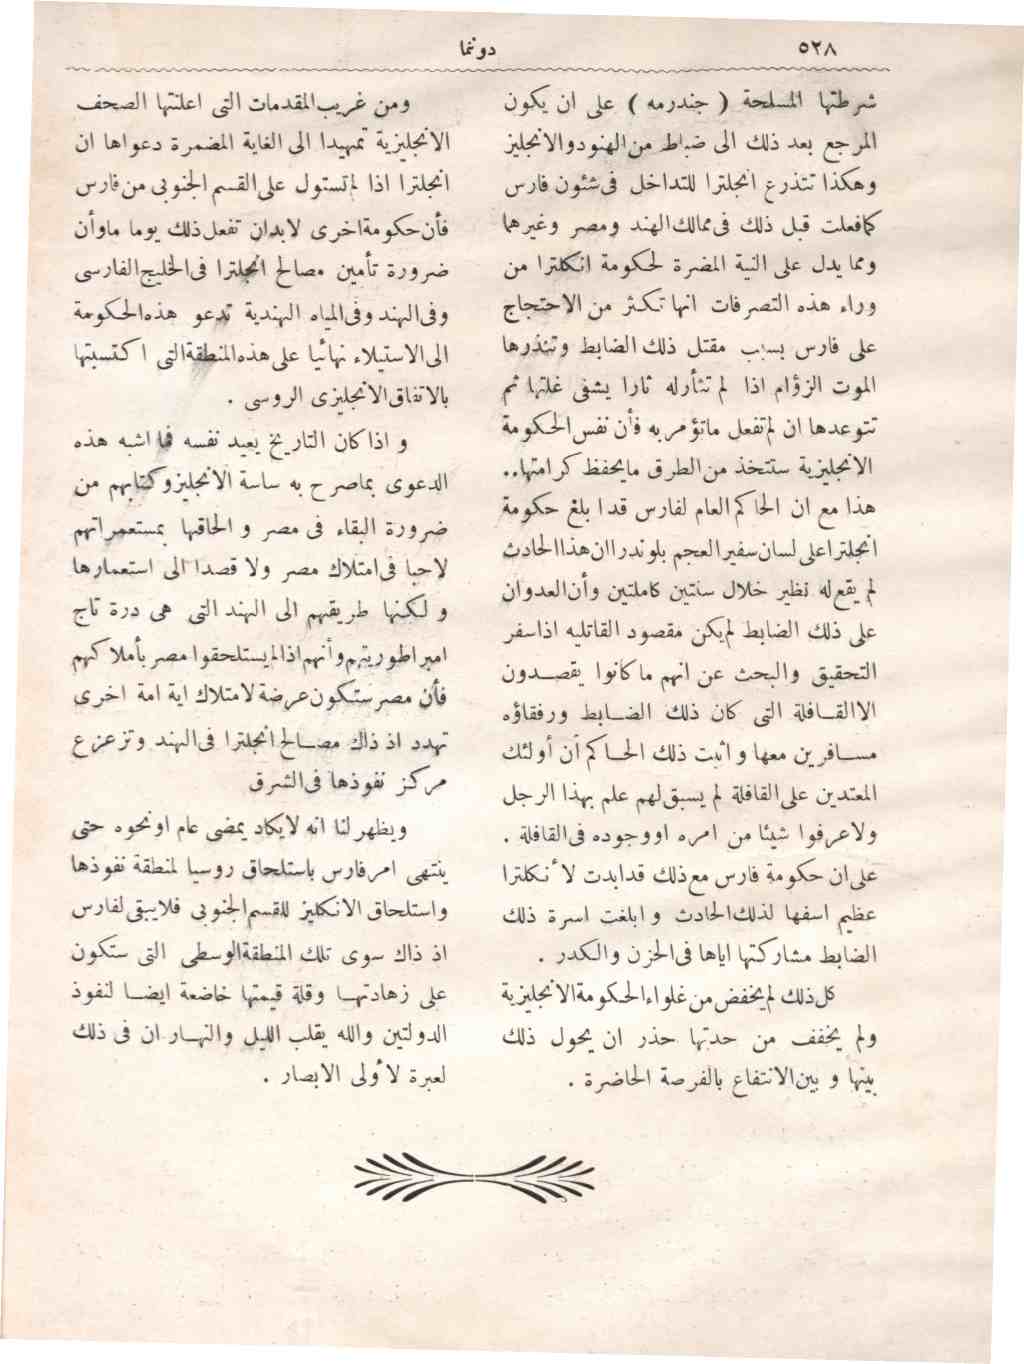 ٥٢٨
دونما
شرطتها المسلحة ( جندرمه ) على ان يكون
المرجع بعد ذلك الى ضباط من الهنود والانجليز
وهكذا تتذرع انجلترا للتداخل فى شئون فارس
كما فعلت قبل ذلك فى ممالك الهند ومصر وغيرهما
ومما يدل على النية المضرة لحكومة انكلترا من
وراء هذه التصرفات انها تكثر من الاحتجاج
على فارس بسبب مقتل ذلك الضابط وتنذرها
الموت الزؤام اذا لم تثأر له ثارا يشفى غلتها ثم
تتوعدها ان لم تفعل ماتؤمر به فأن نفس الحكومة
الانجليزية ستتخذ من الطرق مايحفظ كرامتها..
هذا مع ان الحاكم العام لفارس قد ابلغ حكومة
انجلترا على لسان سفير العجم بلوندرا ان هذا الحادث
لم يقع له نظير خلال سنتين كاملتين وأن العدوان
على ذلك الضابط لم يكن مقصود القاتليه اذا سفر
التحقيق والبحث عن انهم ما كانوا يقصدون
الا القافلة التى كان ذلك الضابط ورفقاؤه
مسافرين معها و اثبت ذلك الحاكم أن أولئك
المعتدين على القافلة لم يسبق لهم علم بهذا الرجل
ولا عرفوا شيئا من امره او وجوده فى القافلة .
على ان حكومة فارس مع ذلك قد ابدت لأنكلترا
عظيم اسفها لذلك الحادث و ابلغت اسرة ذلك
الضابط مشاركتها اياها فى الحزن والكدر .
كل ذلك لم يخفض من غلواء الحكومة الانجليزية
ولم يخفف من حدتها حذر ان يحول ذلك
بينها و بين الانتفاع بالفرصة الحاضرة .
ومن غريب المقدمات التى اعلنتها الصحف
الانجليزية تمهيدا الى الغاية المضمرة دعواها ان
انجلترا اذا لم تستول على القسم الجنوبى من فارس
فأن حكومة اخرى لابد ان تفعل ذلك يوما ما وأن
ضرورة تأمين مصالح انجلترا فى الخليج الفارسى
وفى الهند وفى المياه الهندية تدعو هذه الحكومة
الى الاستيلاء نهائيا على هذه المنطقة التى اكتسبتها
بالاتفاق الانجليزى الروسى .
و اذا كان التاريخ يعيد نفسه فما اشبه هذه
الدعوى بما صرح به ساسة الانجليز وكتابهم من
ضرورة البقاء فى مصر و الحاقها بمستعمراتهم
لاحبا فى امتلاك مصر ولا قصدا الى استعمارها
و لكنها طريقهم الى الهند التى هى درة تاج
امبراطوريتهم وأنهم اذا لم يستلحقوا مصر بأملاكهم
فأن مصر ستكون عرضة لامتلاك اية امة اخرى
تهدد اذ ذاك مصالح انجلترا فى الهند وتزعزع
مركز نفوذها فى الشرق
ويظهر لنا انه لايكاد يمضى عام او نحوه حتى
ينتهى امر فارس باستلحاق روسيا لمنطقة نفوذها
واستلحاق الانكليز للقسم الجنوبى فلا يبقى لفارس
اذ ذاك سوى تلك المنطقة الوسطى التى ستكون
على زهادتها وقلة قيمتها خاضعة ايضا لنفوذ
الدولتين والله يقلب الليل والنهار ان فى ذلك
لعبرة لأولى الابصار .